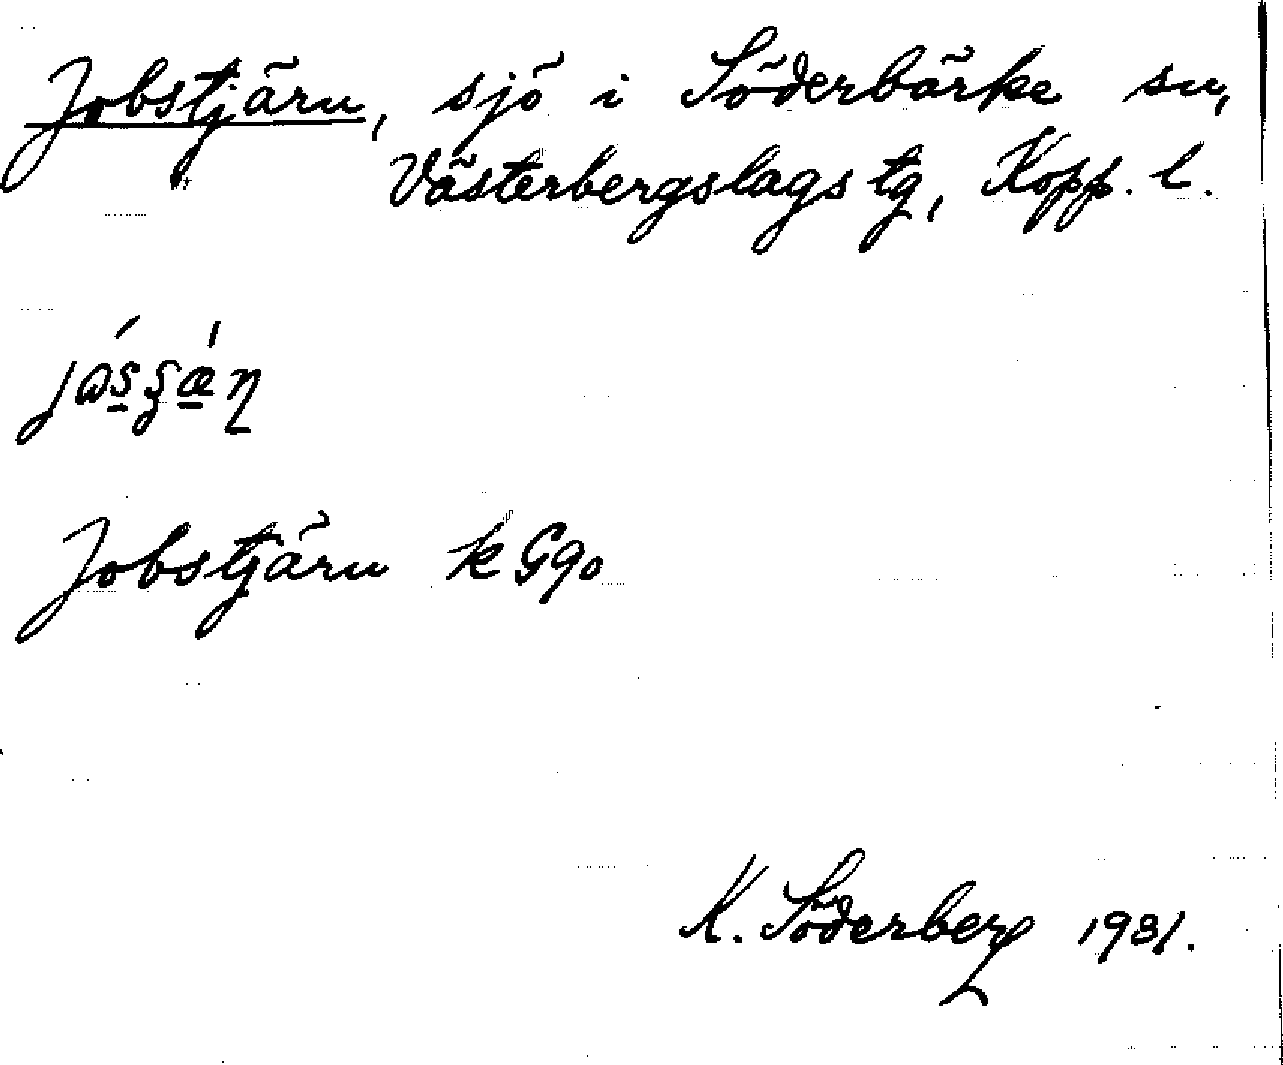 Jobstjärn, sjö i Söderbärke sn,
Västerbergslags tg, Kopp. l.
Jobstjärn k Gqo
K. Söderberg 1931.